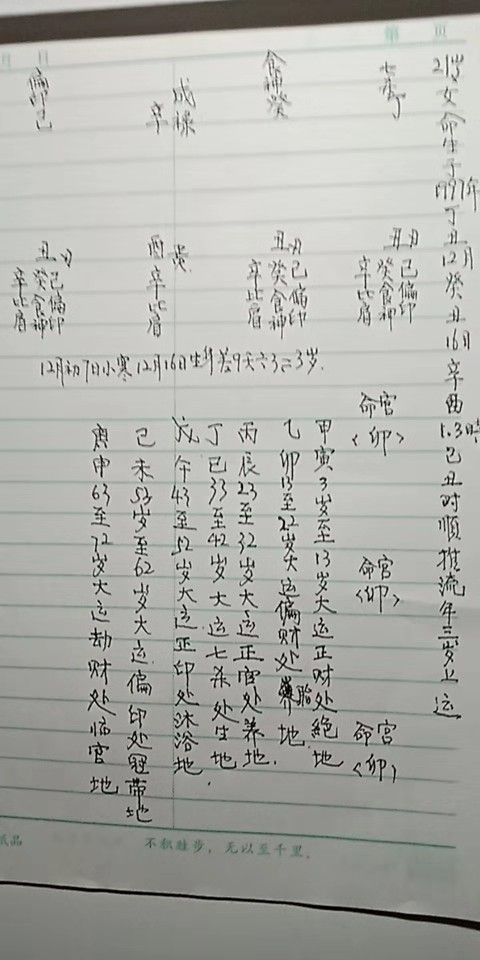 第 页
月 日
21岁女命生于1997年丁丑12月癸丑16日辛酉1.3时己丑时顺推流年三岁上运
七杀丁
食神癸
辛
偏印己
丑月
己偏印
癸食神
辛比肩
丑月
己偏印
癸食神
辛比肩
酉
辛比肩
丑
己偏印
癸食神
辛比肩
12月初7日小寒12月16日生年差9天六3=3岁.
命宫
<卯>
命宫
<卯>
命宫
<卯>
甲寅3岁至13岁大运正财处绝地
乙卯13至22岁大运偏财处胎地.
丙辰23至32岁大运正官处养地.
丁巳33至42岁大运七杀处生地.
戊午43至52岁大运正印处沐浴地
己未53岁至62岁大运偏印处冠带地
庚申63至72岁大运劫财处临官地
纸品
不积跬步，无以至千里。